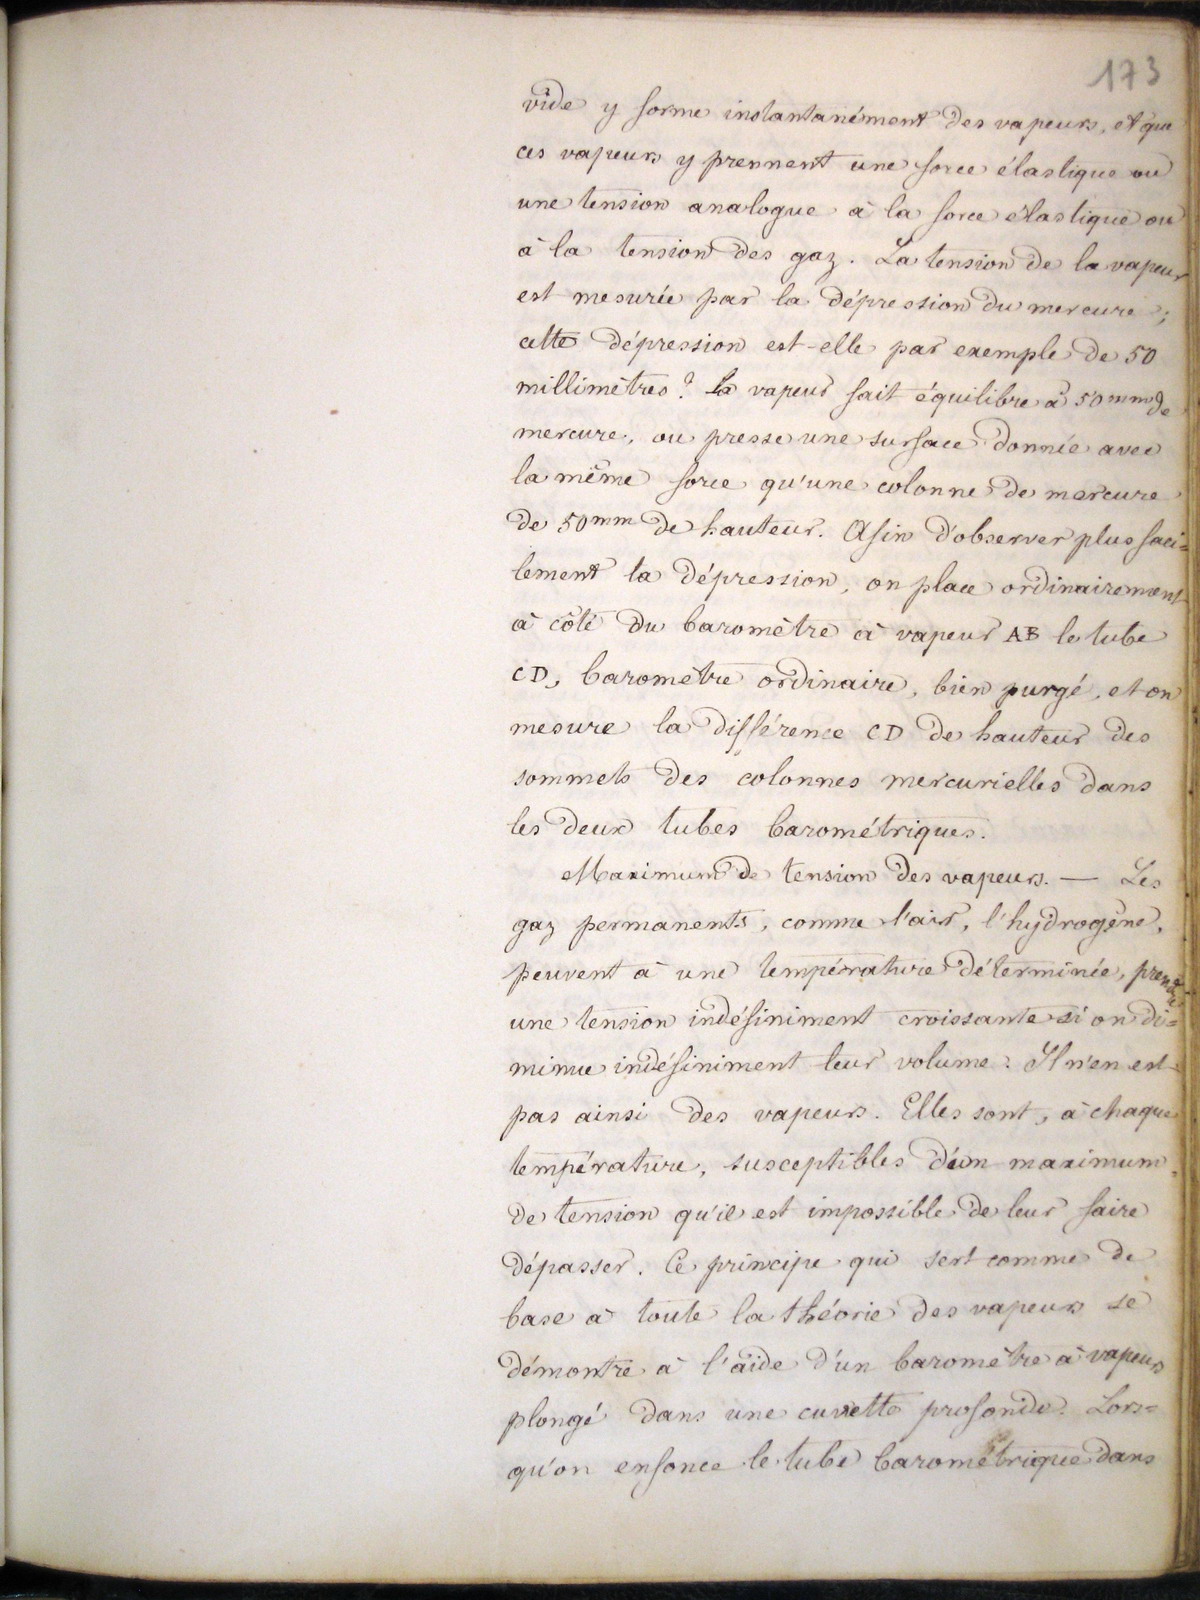 173
vide y forme instantanément des vapeurs, et que
ces vapeurs y prennent une force élastique ou
une tension analogue à la force élastique ou
à la tension des gaz. La tension de la vapeur
est mesurée par la dépression du mercure ;
cette dépression est-elle par exemple de 50
millimètres ? la vapeur fait équilibre à 50mm de
mercure, ou presse une surface donnée avec
la même force qu'une colonne de mercure
de 50mm de hauteur. Afin d'observer plus faci=
lement la dépression, on place ordinairement
à côté du baromètre à vapeur AB le tube
CD, baromètre ordinaire, bien purgé, et on
mesure la différence CD de hauteur des
sommets des colonnes mercurielles dans
les deux tubes barométriques.
Maximum de tension des vapeurs. — Les
gaz permanents, comme l'air, l'hydrogène,
peuvent à une température déterminée, prendre
une tension indéfiniment croissante si on di=
minue indéfiniment leur volume. Il n'en est
pas ainsi des vapeurs. Elles sont, à chaque
température, susceptibles d'un maximum
de tension qu'il est impossible de leur faire
dépasser. Ce principe qui sert comme de
base à toute la théorie des vapeurs se
démontre à l'aide d'un baromètre à vapeurs
plongé dans une cuvette profonde. Lors=
qu'on enfonce le tube barométrique dans